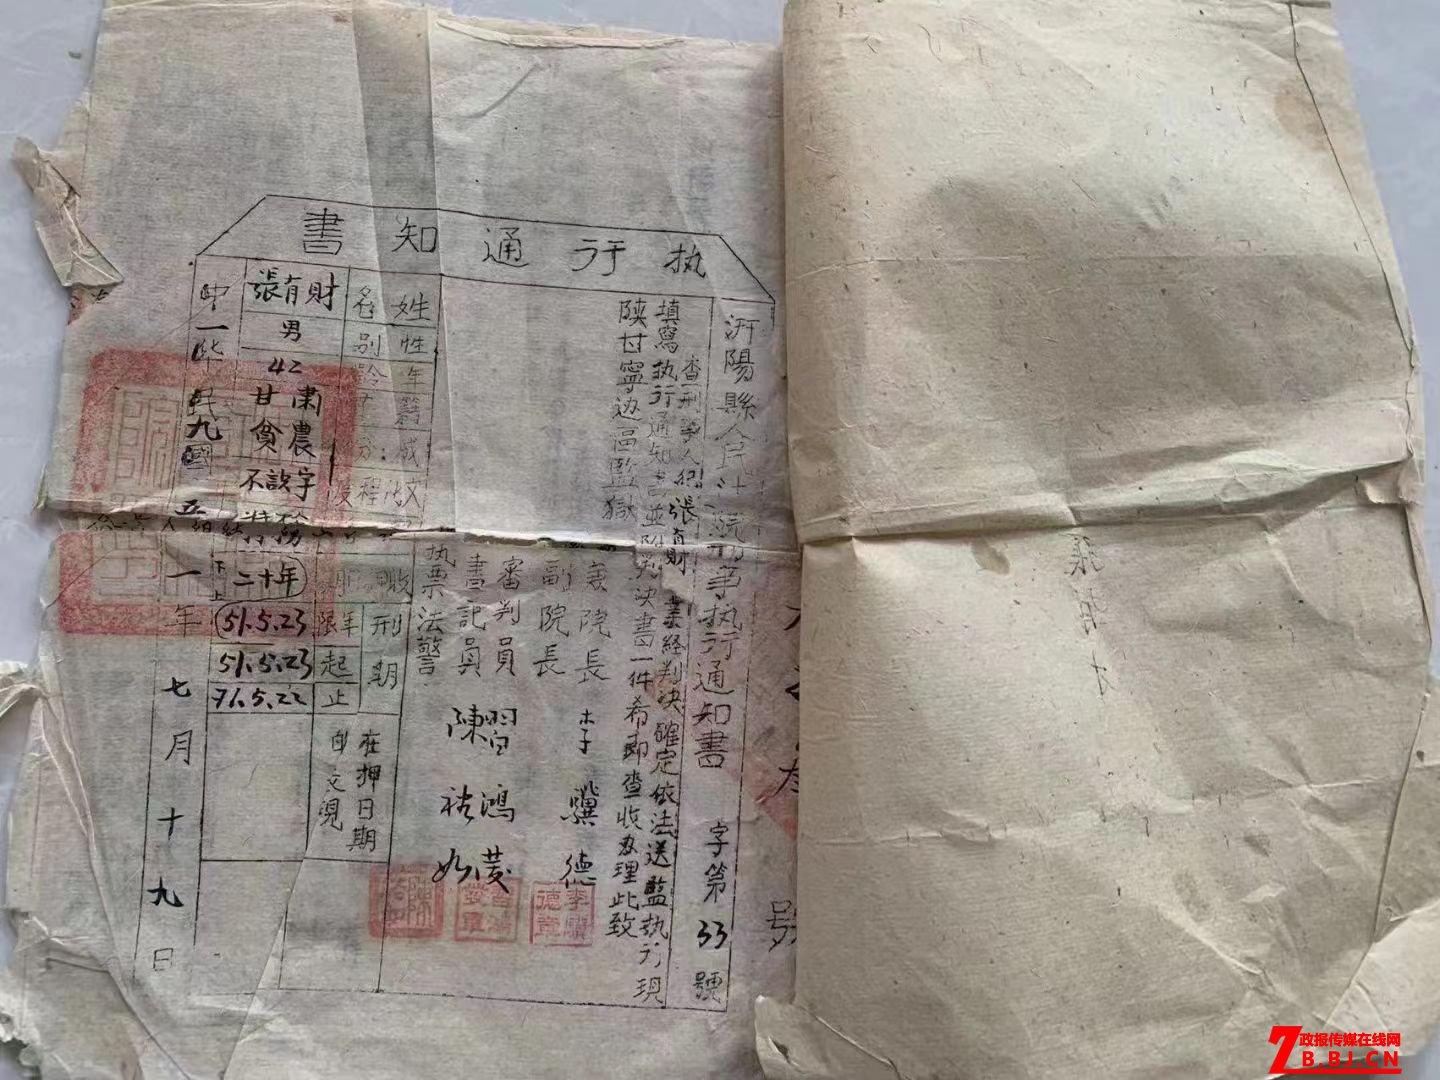 执行通知書
汧陽縣人民法院刑事执行通知書 字第33號
查刑事人犯張有財業经判决確定依法送監执行現
填寫执行通知書並附判决書一件希即查收办理此致
陕甘寧边區監獄
院長 李驥德
副院長
審判員 習鴻發
書記員 陳祐如
执票法警
姓名 張有財
性別 男
年齡 42
籍 甘肅
成分 貧農
文化程度 不識字
特務
刑期
年限 二十年
51.5.23
起 51.5.23
止 71.5.22
在押日期
一九五一年七月十九日
號
張有才
政报传媒在线网
ZB.BJ.CN